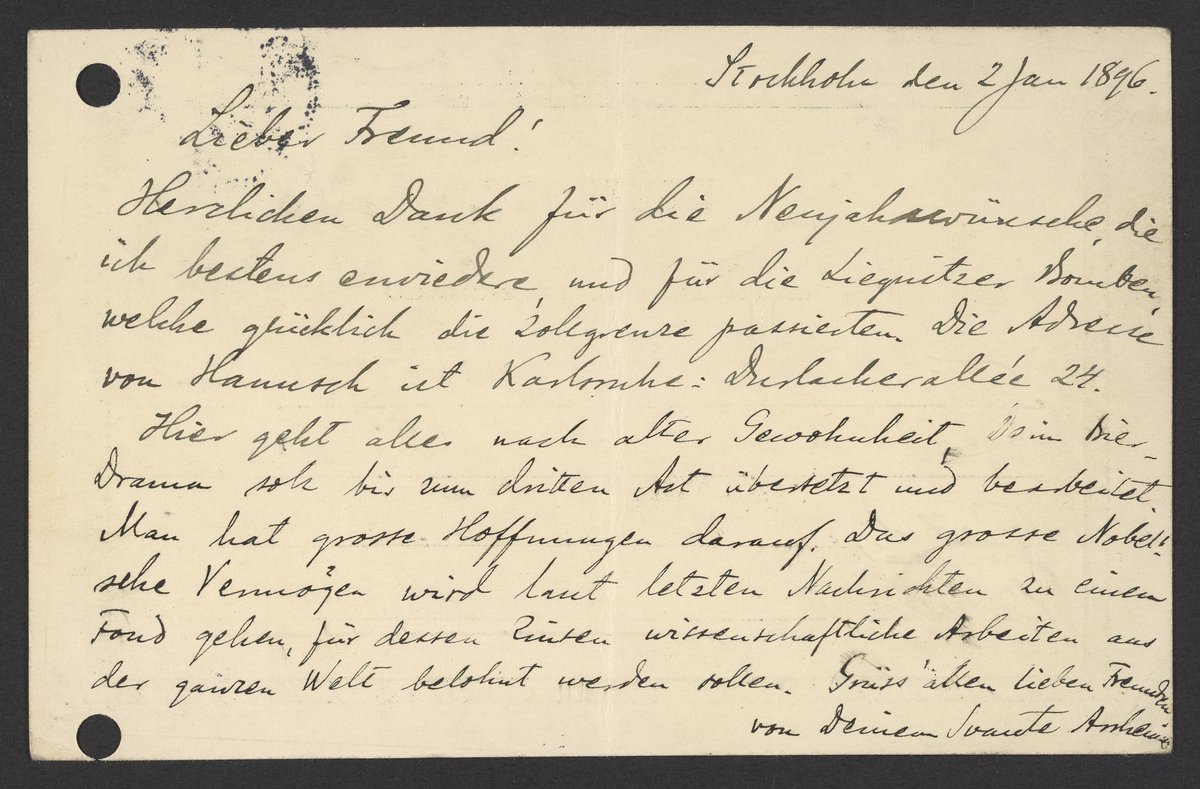 Stockholm den 2 Jan 1896.
Lieber Freund!
Herzlichen Dank für die Neujahrswünsche, die
ich bestens erwiedere, und für die Liegnitzer Bomben,
welche glücklich die Zollgrenze passierten. Die Adresse
von Hanusch ist Karlsruhe: Durlacherallée 24.
Hier geht alles nach alter Gewohnheit,
Drama soll bis zum dritten Act übersetzt und bearbeitet.
Man hat grosse Hoffnungen darauf. Das grosse Nobel'
sche Vermögen wird laut letzten Nachrichten zu einem
Fond gehen, für dessen Zinsen wissenschaftliche Arbeiten aus
der ganzen Welt belohnt werden sollen. Grüss' allen lieben Freunden
von Deinem Svante Arrhenius